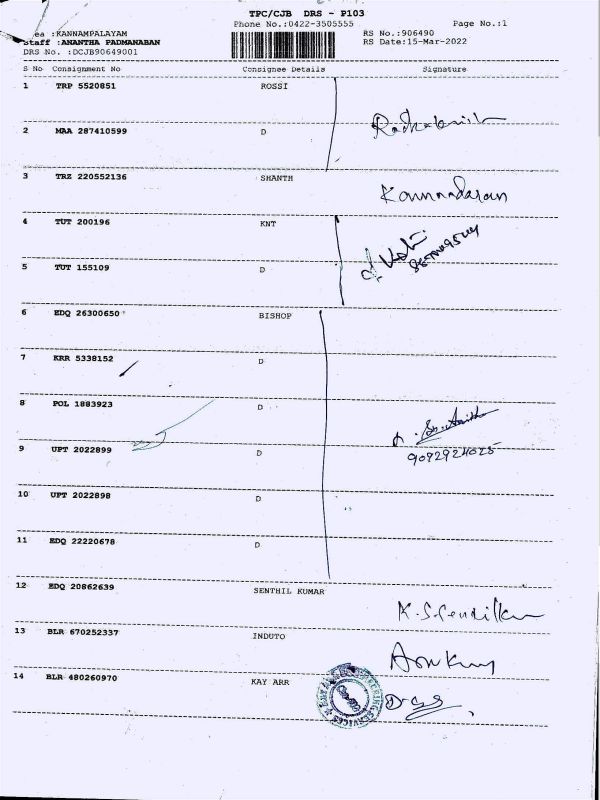 TPC/CJB DRS - P103
Phone No.:0422-3505555 Page No.:1
ea :KANNAMPALAYAM RS No.:906490
Staff :ANANTHA PADMANABAN RS Date:15-Mar-2022
DRS No. :DCJB90649001
S No Consignment No Consignee Details Signature
1 TRP 5520851 ROSSI
2 MAA 287410599 D
3 TRZ 220552136 SHANTH
4 TUT 200196 KNT
5 TUT 155109 D
6 EDQ 26300650 BISHOP
7 KRR 5338152 D
8 POL 1883923 D
9 UPT 2022899 D
9092924025
10 UPT 2022898 D
11 EDQ 22220678 D
12 EDQ 20862639 SENTHIL KUMAR
13 BLR 670252337 INDUTO
14 BLR 480260970 KAY ARR